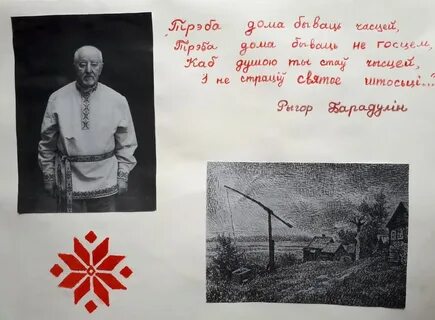 "Трэба дома бываць часцей,
Трэба дома бываць не госцем,
Каб душою ты стаў чысцей,
І не страціў святое штосьці..."
Рыгор Барадулін